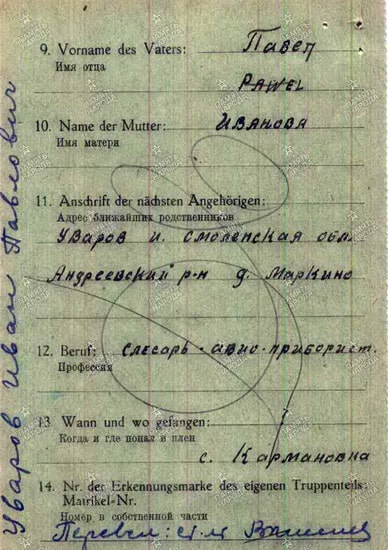 Уваров Иван Павлович
9. Vorname des Vaters: Павел
Имя отца
PAWEL
10. Name der Mutter: Иванова
Имя матери
11. Anschrift der nächsten Angehörigen:
Адрес ближайших родственников
Уваров И. Смоленская обл.
Андреевский р-н д. Маркино
12. Beruf: Слесарь-авио-приборист.
Профессия
13 Wann und wo gefangen:
Когда и где попал в плен
с. Кармановна
14. Nr. der Erkennungsmarke des eigenen Truppenteils:
Matrikel-Nr.
Номер в собственной части
Перевел: ст. л-т